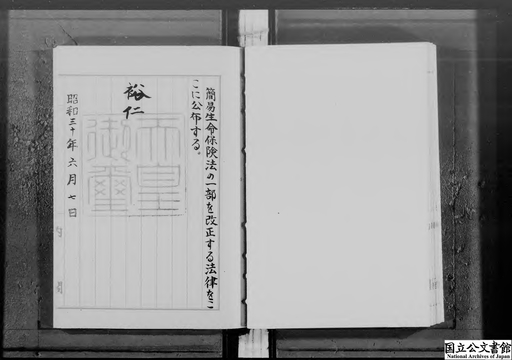 簡易生命保険法の一部を改正する法律をこ
こに公布する。
裕仁
天皇
御璽
昭和三十年六月七日
国立公文書館
National Archives of Japan